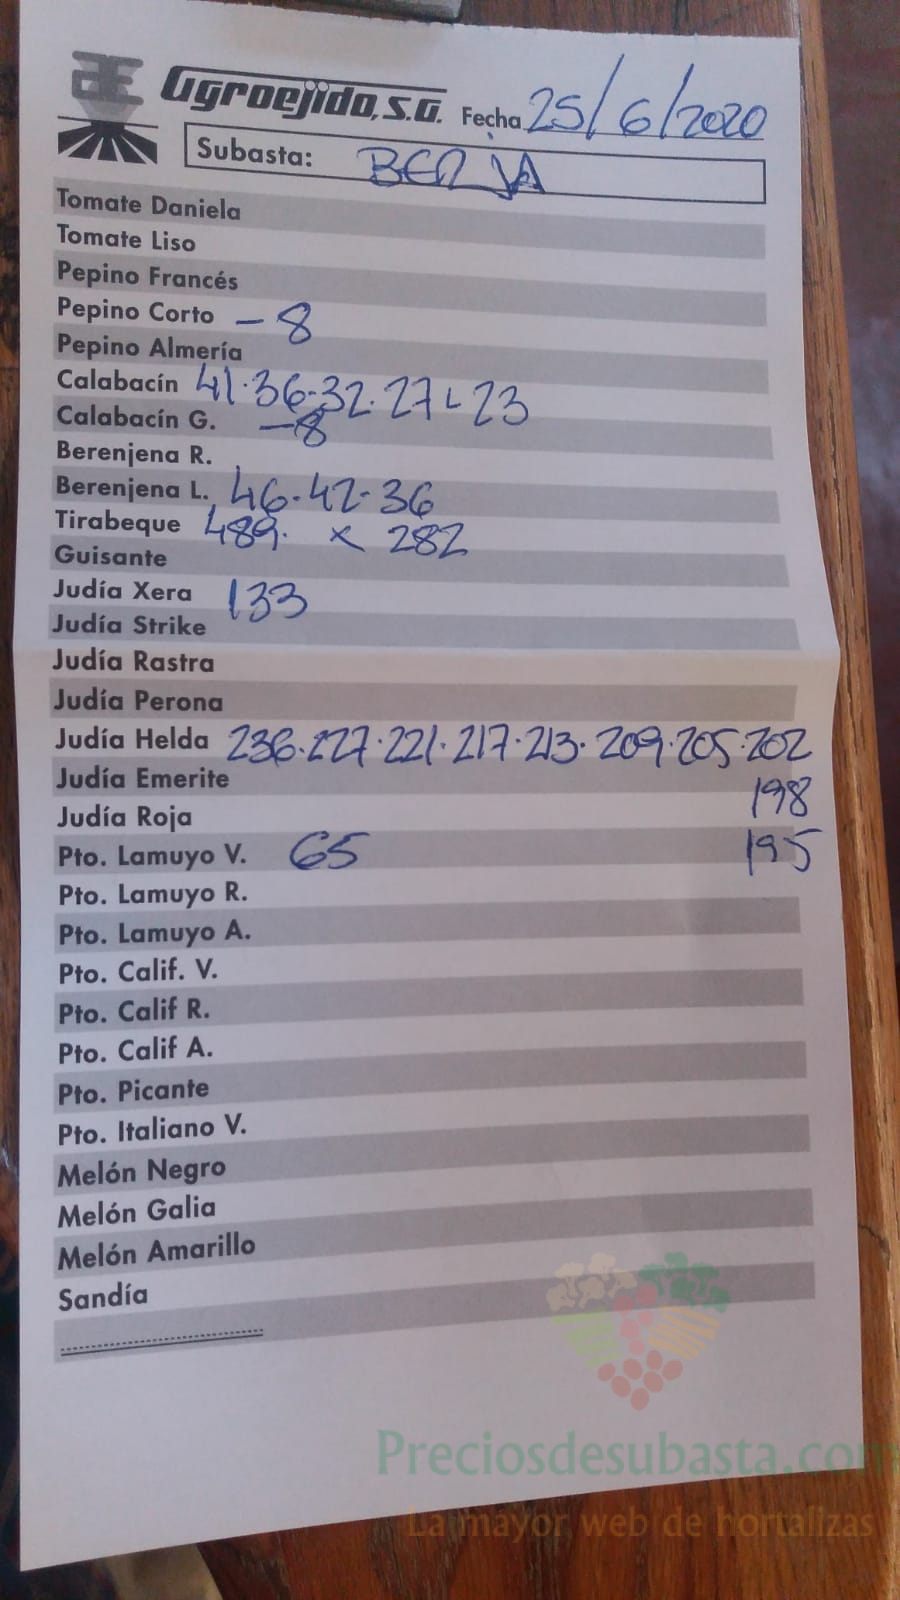 Agroejido, S.A. Fecha 25/6/2020
Subasta: BERJA
Tomate Daniela
Tomate Liso
Pepino Francés
Pepino Corto - 8
Pepino Almería
Calabacín 41·36·32·27·23
Calabacín G. -8
Berenjena R.
Berenjena L. 46·42·36
Tirabeque 489· x 282
Guisante
Judía Xera 133
Judía Strike
Judía Rastra
Judía Perona
Judía Helda 236·227·221·217·213·209·205·202
Judía Emerite 198
Judía Roja
Pto. Lamuyo V. 65 195
Pto. Lamuyo R.
Pto. Lamuyo A.
Pto. Calif. V.
Pto. Calif R.
Pto. Calif A.
Pto. Picante
Pto. Italiano V.
Melón Negro
Melón Galia
Melón Amarillo
Sandía
Preciosdesubasta.com
La mayor web de hortalizas